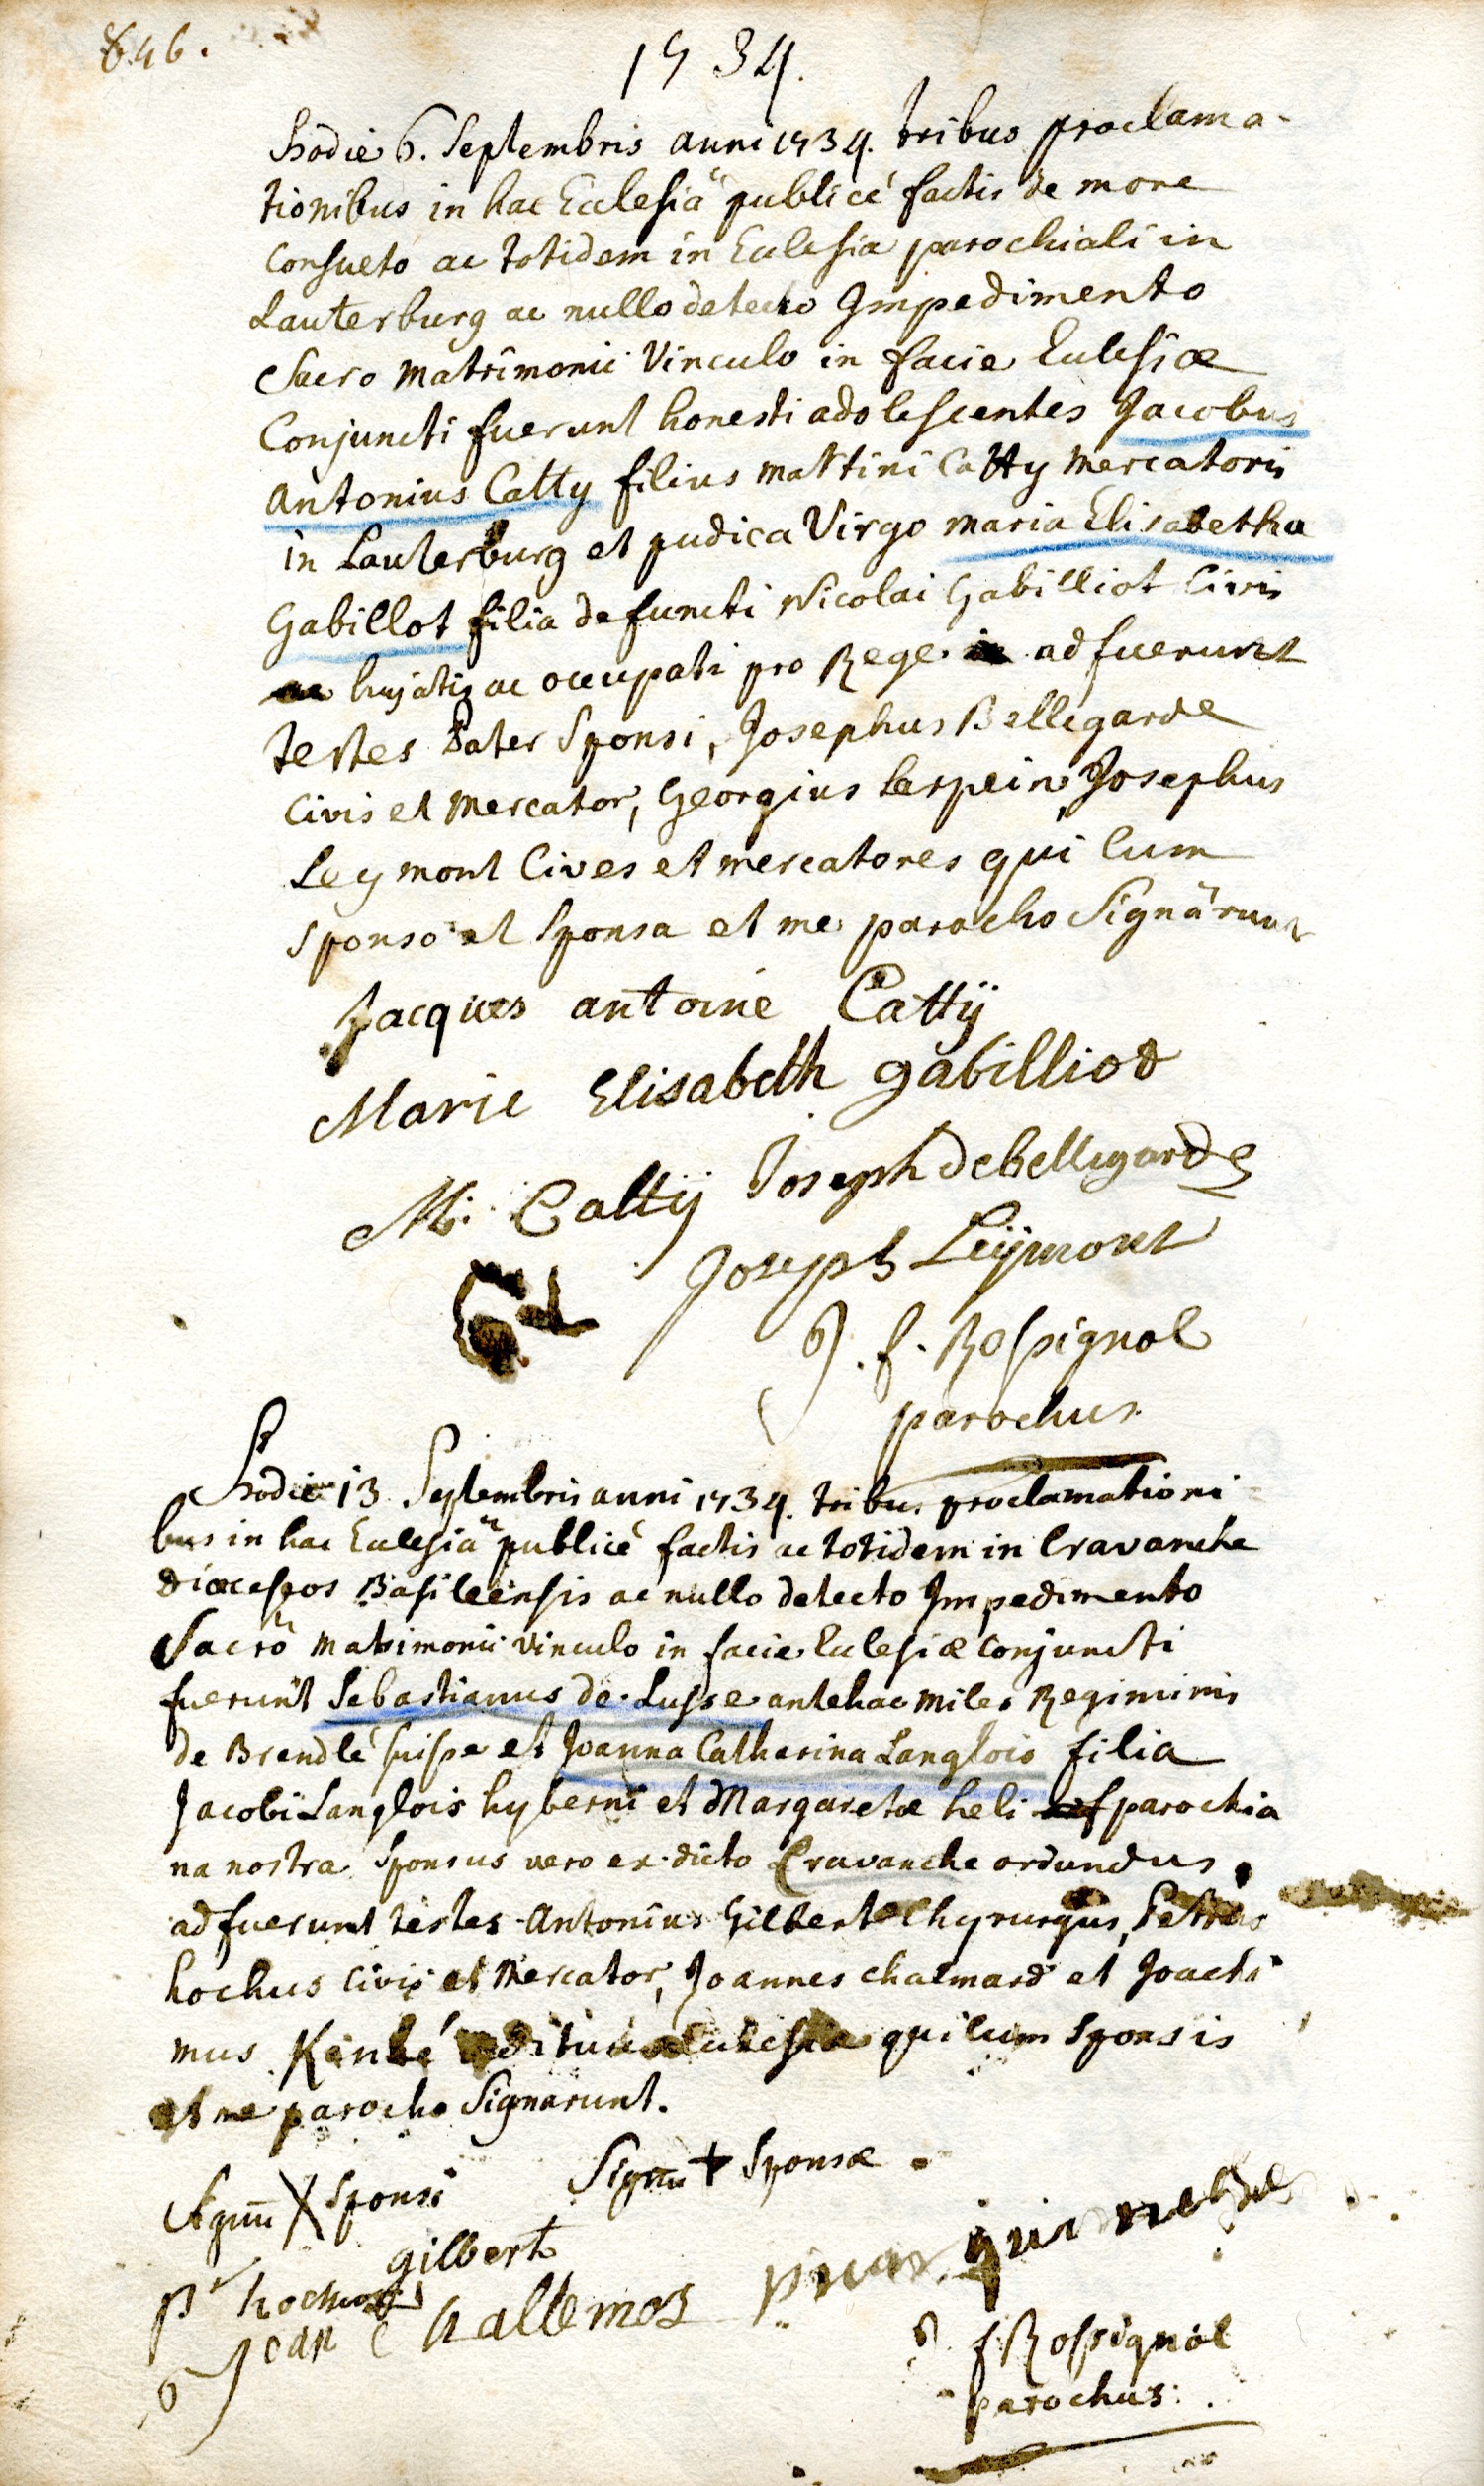 846.
1734.
Hodie 6. Septembris anni 1734. tribus proclama-
tionibus in hac Ecclesiâ publicé factis de more
Consueto ac totidem in Ecclesia parochiali in
Lauterburg ac nullo detecto Impedimento
Sacro matrimonii Vinculo in facie Ecclesiæ
Conjuncti fuerunt honesti adolescentes Jacobus
Antonius Catty filius Martini Catty Mercatoris
in Lauterburg et pudica Virgo maria Elisabetha
Gabillot filia defuncti Nicolai Gabilliot Civis
hujatis ac occupati pro Rege adfuerunt
testes Pater Sponsi, Josephus Bellegarde
Civis et Mercator, Georgius lespein, Josephus
Leymont Cives et mercatores qui Cum
Sponso et Sponsa et me parocho Signârunt
Jacques antoine Cattÿ
Marie Elisabeth gabilliod
M. Cattÿ Joseph debellegarde
Joseph Leÿmont
J. f. Rossignol
parochus
Hodie 13 Septembris anni 1734. tribus proclamationi
bus in hac Ecclesiâ publicé factis ac totidem in Cravanche
dioeceseos Basileensis ac nullo detecto Impedimento
Sacrô Matrimonii vinculo in facie Ecclesiæ Conjuncti
fuerunt Sebastianus de Lusse antehac Miles Regiminis
de Brendlé suisse et Joanna Catharina Langlois filia
Jacobi Langlois hyberni et Margaretæ heli parochia
na nostra Sponsus vero ex dicto Cravanche oriundus,
adfuerunt testes Antonius Gilbert Chyrurgus, Petrus
hochus Civis et Mercator, Joannes chalmard et Joachi
mus Kinlé Ecclesiæ qui cum Sponsis
et me parocho Signarunt.
Signũ X Sponsi Signũ + Sponsæ
gilbert
p hochus
Jean
J f Rossignol
parochus